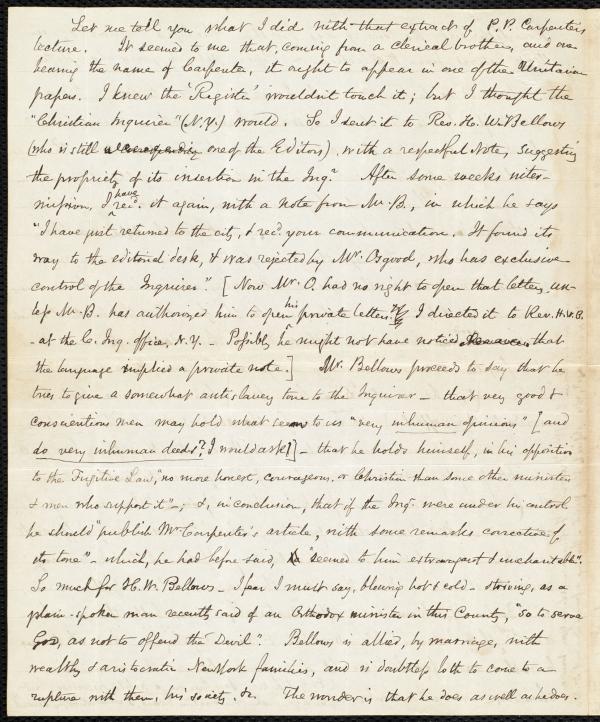 Let me tell you what I did with that extract of P. P. Carpenter's
lecture. It seemed to me that, coming from a clerical brother, and one
bearing the name of Carpenter, it ought to appear in one of the Unitarian
papers. I knew the 'Register' wouldn't touch it; but I thought the
"Christian Inquirer" (N.Y.) would. So I sent it to Rev. H. W. Bellows
(who is still one of the Editors), with a respectful Note, suggesting
the propriety of its insertion in the Inqr. After some weeks inter-
mission, I have recd. it again, with a note from Mr. B., in which he says
"I have just returned to the city, & recd. your communication. It found its
way to the editorial desk, & was rejected by Mr. Osgood, who has exclusive
control of the Inquirer". [Now Mr. O. had no right to open that letter, un-
less Mr. B. has authorized him to open his private letters. I directed it to Rev. H.W.B.
- at the C. Inq. office, N.Y. - Possibly he might not have noticed that
the language implied a private note.] Mr. Bellows proceeds to say that he
tries to give a somewhat antislavery tone to the Inquirer - that very good &
conscientious men may hold what seem to us "very inhuman opinions" [and
do very inhuman deeds? I would ask!] - that he holds himself, in his opposition
to the Fugitive Law, "no more honest, courageous, or Christian than some other ministers
& men who support it" -; &, in conclusion, that if the Inqr. were under his control
he should "publish Mr Carpenter's article, with some remarks corrective of
its tone" - which, he had before said, "seemed to him extravagant & uncharitable".
So much for H. W. Bellows - I fear I must say, blowing hot & cold - striving, as a
plain-spoken man recently said of an Orthodox minister in this County, "so to serve
God, as not to offend the Devil". Bellows is allied, by marriage, with
wealthy & aristocratic New York families, and is doubtless loth to come to a
rupture with them, his society, &c. The wonder is that he does as well as he does.